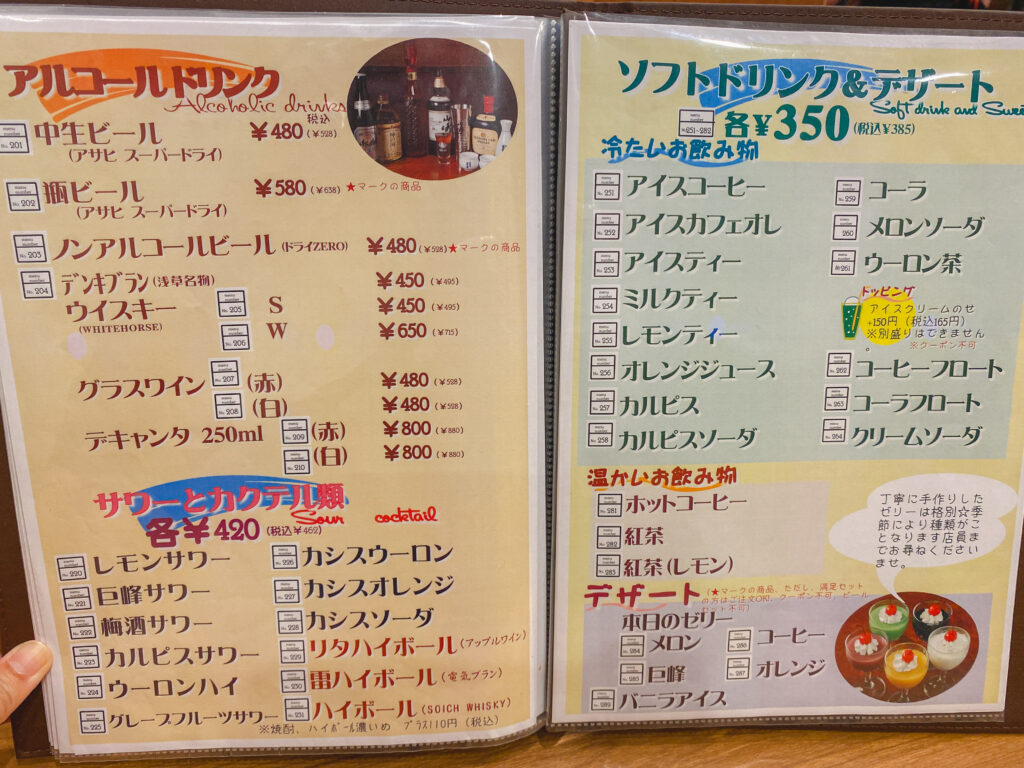 アルコールドリンク
Alcoholic drinks
税込
menu number No. 201 中生ビール ¥480(¥528)
(アサヒ スーパードライ)
menu number No. 202 瓶ビール ¥580(¥638)★マークの商品
(アサヒ スーパードライ)
menu number No. 203 ノンアルコールビール(ドライZERO) ¥480(¥528)★マークの商品
menu number No. 204 デンキブラン(浅草名物) ¥450(¥495)
ウイスキー menu number No. 205 S ¥450(¥495)
(WHITEHORSE) menu number No. 206 W ¥650(¥715)
グラスワイン menu number No. 207 (赤) ¥480(¥528)
menu number No. 208 (白) ¥480(¥528)
デキャンタ 250ml menu number No. 209 (赤) ¥800(¥880)
menu number No. 210 (白) ¥800(¥880)
サワーとカクテル類
Sour cocktail
各¥420(税込¥462)
menu number No. 220 レモンサワー
menu number No. 221 巨峰サワー
menu number No. 222 梅酒サワー
menu number No. 223 カルピスサワー
menu number No. 224 ウーロンハイ
menu number No. 225 グレープフルーツサワー
menu number No. 226 カシスウーロン
menu number No. 227 カシスオレンジ
menu number No. 228 カシスソーダ
menu number No. 229 リタハイボール(アップルワイン)
menu number No. 230 雷ハイボール(電気ブラン)
menu number No. 231 ハイボール(SOICH WHISKY)
※焼酎、ハイボール濃いめ プラス110円(税込)
ソフトドリンク&デザート
Soft drink and
menu number No. 251-282 各¥350(税込¥385)
冷たいお飲み物
menu number No. 251 アイスコーヒー
menu number No. 252 アイスカフェオレ
menu number No. 253 アイスティー
menu number No. 254 ミルクティー
menu number No. 255 レモンティー
menu number No. 256 オレンジジュース
menu number No. 257 カルピス
menu number No. 258 カルピスソーダ
menu number No. 259 コーラ
menu number No. 260 メロンソーダ
menu number No. 261 ウーロン茶
トッピング
アイスクリームのせ
+150円(税込165円)
※別盛りはできません
。 ※クーポン不可
menu number No. 262 コーヒーフロート
menu number No. 263 コーラフロート
menu number No. 264 クリームソーダ
温かいお飲み物
menu number No. 281 ホットコーヒー
menu number No. 282 紅茶
menu number No. 283 紅茶(レモン)
丁寧に手作りした
ゼリーは格別☆季
節により種類がこ
となります店員ま
でお尋ねください
ませ。
デザート
(★マークの商品、ただし、満足セット
の方はご注文OK!、クーポン不可、ビール
セット不可)
本日のゼリー
menu number No. 284 メロン
menu number No. 285 巨峰
menu number No. 286 コーヒー
menu number No. 287 オレンジ
menu number No. 289 バニラアイス